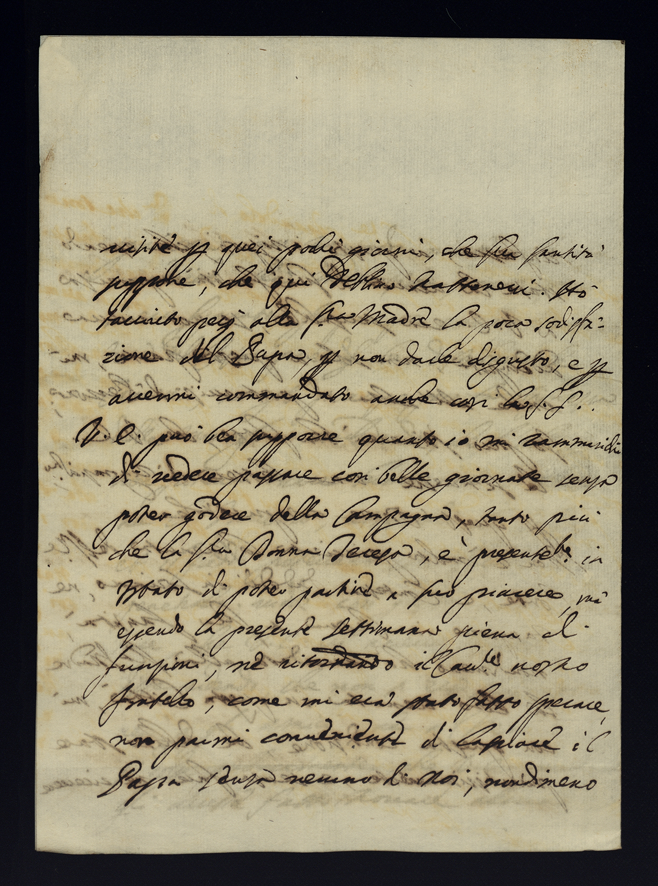 visite p quei pochi giorni, che sua santità
suppone, che qui debbino trattenersi. Hò
taciuto però alla sig.ra Madre la poca sodisfa-
zione del Papa, p non darle disgusto, e p
avermi commandato anche così la s. s. .
V. E. può ben supporre quanto io mi rammarichi
di vedere passare così belle giornate senza
poter godere della Campagna, tanto più
che la sig.ra Donna Teresa, è presentem.te in
stato di poter partire a suo piacere, mà
essendo la presente settimana piena di
funzioni, nè ritornando il Cav.re nostro
fratello, come mi era stato fatto sperare,
non parmi conveniente di lasciare il
Papa senza nessuno di noi, nondimeno